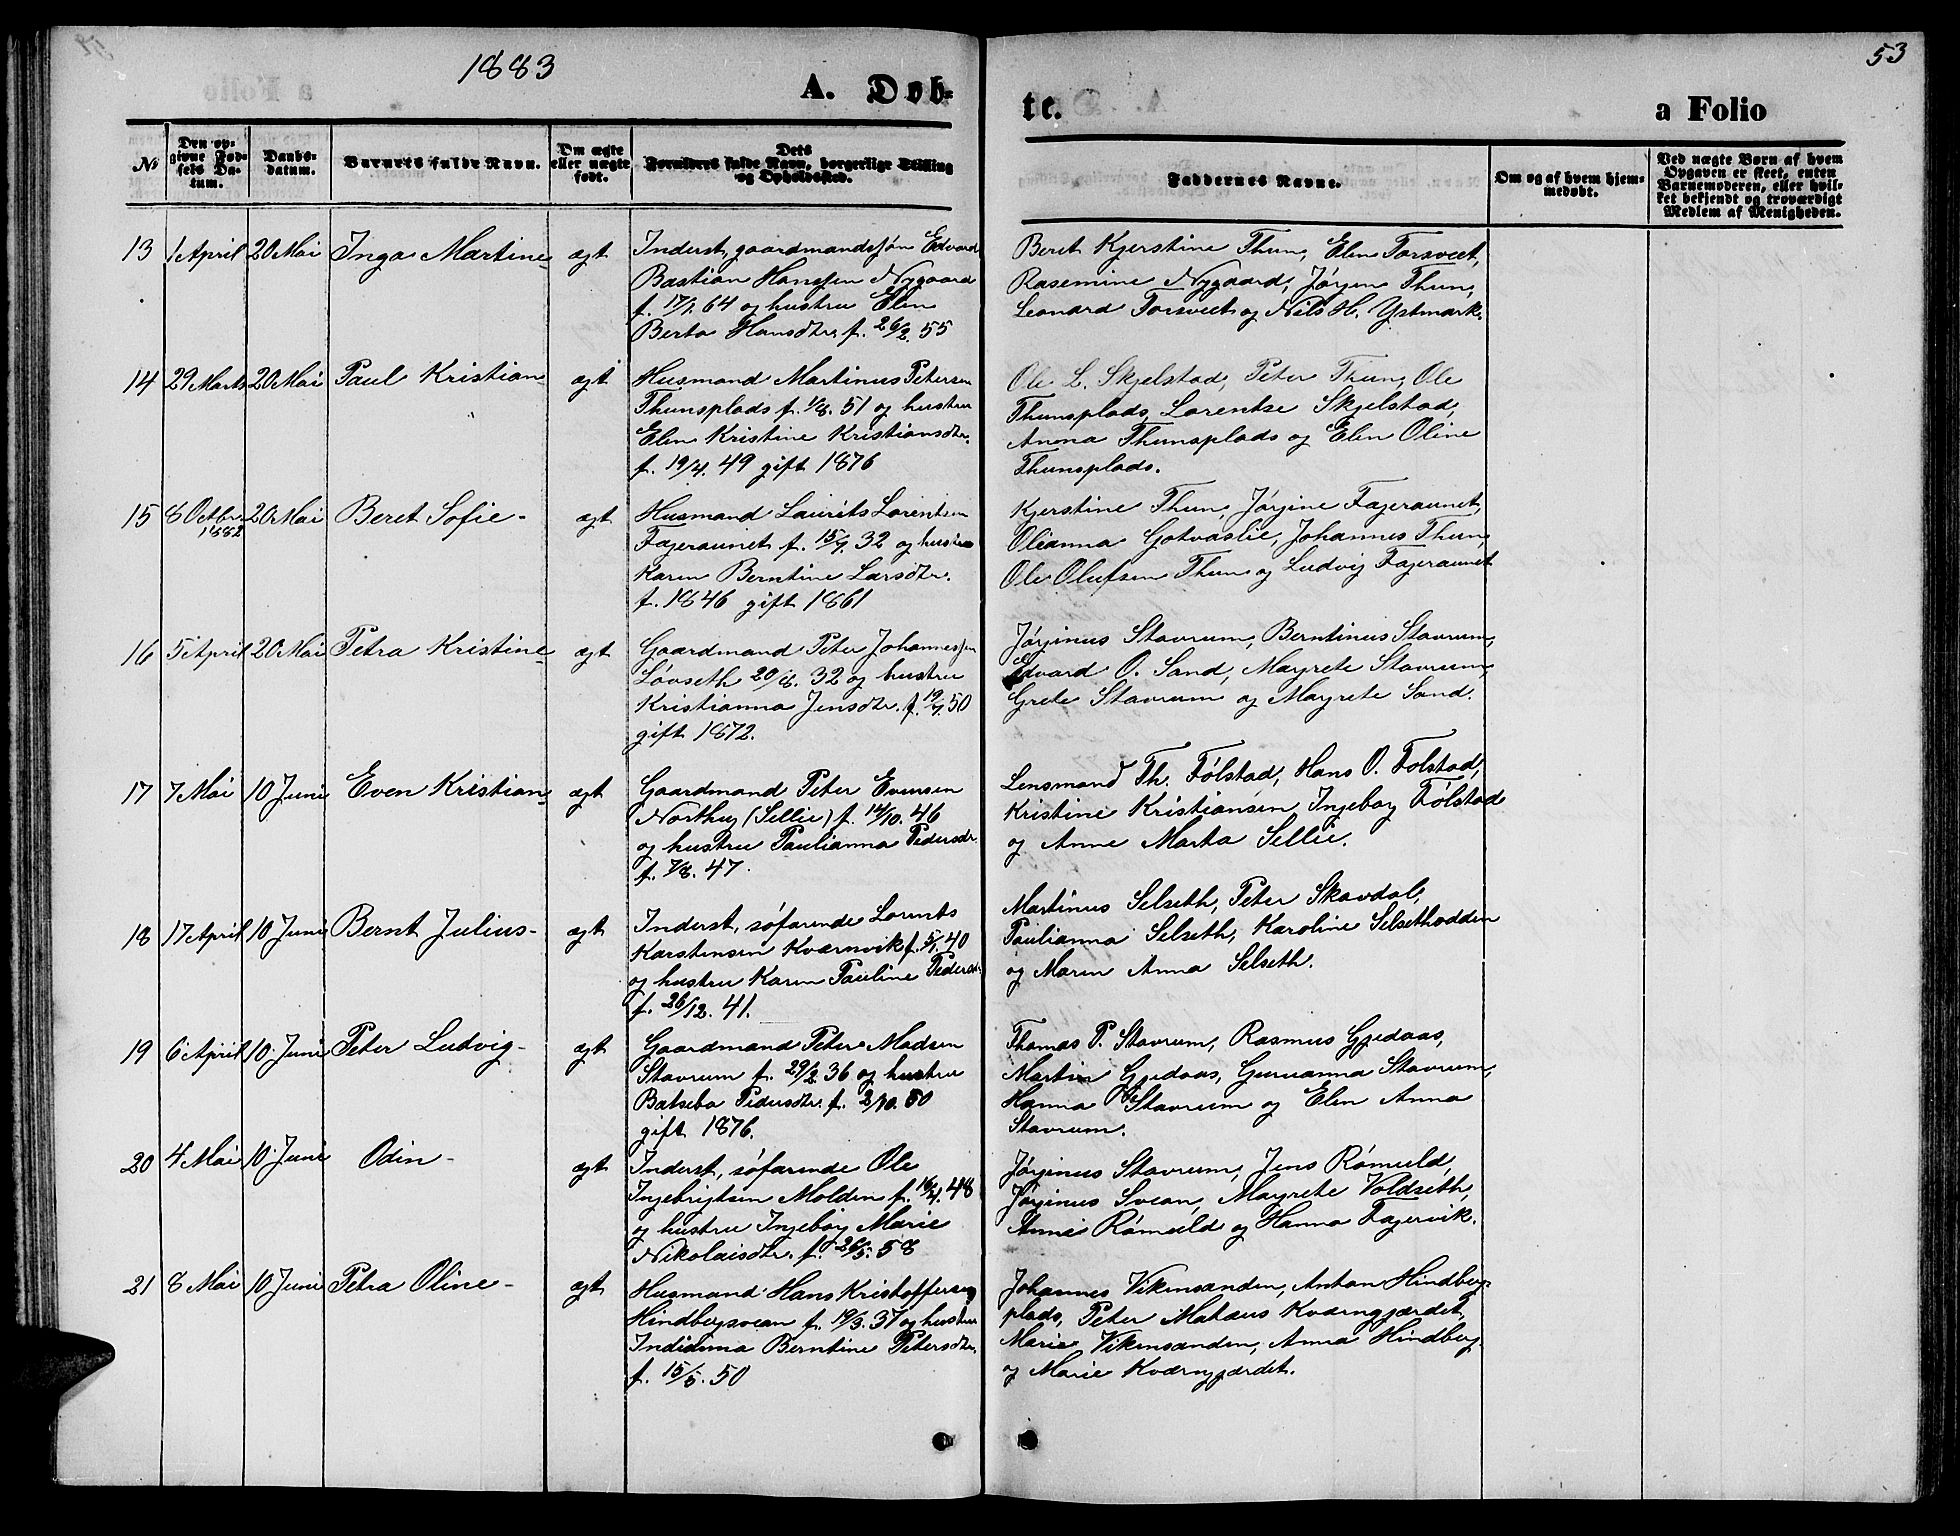 1883
A. Døb-
№
Den op-
givne Fød-
sels Da-
tum.
Daabs-
datum.
Barnets fulde Navn.
Om ægte
eller uægte
født.
Dets
Forældres fulde Navn, borgerlige Stilling
og Opholdssted.
13 1 April 20 Mai Inga Martine- ægt
Inderst, gaardmandssøn Edvard
Bastian Hanssen Nygaard
f. 64 og hustru Elen
Berta Hansdtr. f. 26/2. 55
14 29 Marts 20 Mai Paul Kristian ægt
Husmand Martinus Petersen
Thunsplads f. 1/8. 51 og hustru
Elen Kristine Kristiansdtr.
f. 19/4. 49 gift 1876
15 8 Octbr 1882 20 Mai Beret Sofie- ægt
Husmand Laurits Lorentsen
Fageraunet f. 32 og hustru
Karen Berntine Larsdtr.
f. 1846 gift 1861
16 5 April 20 Mai Petra Kristine- ægt
Gaardmand Peter Johannessen
Løvseth 20/8. 32 og hustru
Kristianna Jensdtr. f. 50
gift 1872.
17 7 Mai 10 Juni Even Kristian- ægt
Gaardmand Peter Evensen
Northug (Sellie) f. 14/10. 46
og hustru Paulianna Pedersdtr
f. 7/8. 47.
18 17 April 10 Juni Bernt Julius- ægt
Inderst, søfarende Lorents
Karstensen Kværnvik f. 40
og hustru Karen Pauline Pedersdt.
f. 26/12. 41.
19 6 April 10 Juni Peter Ludvig- ægt
Gaardmand Peter Madsen
Stavrum f. 29/2 36 og hustru
Batseba Pedersdtr. f. 2/10. 50
gift 1876.
20 4 Mai 10 Juni Odin- ægt
Inderst, søfarende Ole
Ingebrigtsen Molden f. 48
og hustru Ingebor Marie
Nikolaisdtr. f. 26/5. 58
21 8 Mai 10 Juni Petra Oline- ægt
Husmand Hans Kristoffersen
Hindbergsvean f. 19/3. 37 og hustru
Berntine Petersdtr.
f. 15/5. 50
53
te.
a Folio
Faddernes Navne.
Om og af hvem hjem-
medøbt.
Ved uægte Børn af hvem
Opgaven er skeet, enten
Barnemoderen, eller hvil-
ket bekjendt og troværdigt
Medlem af Menigheden.
Beret Kjerstine Thun, Elen Forsveet,
Rasemine Nygaard, Jørgen Thun,
Leonard Forsveet og Nils H. Ystmark.
Ole L. Skjelstad, Peter Thun, Ole
Thunsplads, Lorentse Skjelstad,
Anna Thunsplads og Elen Oline
Thunsplads.
Kjerstine Thun, Jørgine Fageraunet,
Olianna Gotvaslie, Johannes Thun,
Ole Olufsen Thun og Ludvig Fageraunet
Jørginus Stavrum, Berntinus Stavrum,
Edvard O. Sand, Margrete Stavrum,
Grete Stavrum og Margrete Sand.
Lensmand Th. Følstad, Hans O. Følstad,
Kristine Kristiansen, Ingebor Følstad
og Anne Marta Sellie.
Martinus Selseth, Peter Skavdal,
Paulianna Selseth, Karoline Selsethodden
og Maren Anna Selseth.
Thomas P. Stavrum, Rasmus Gjedaas,
Martin Gjedaas, Guruanna Stavrum,
Hanna Stavrum og Elen Anna
Stavrum.
Jørginus Stavrum, Jens Rømuld,
Jørginus Svean, Margrete Voldseth,
Anne Rømuld og Hanna Fagervik.
Johannes Vikensanden, Anton Hindberg-
plads, Peter Mataus Kværngjærdet,
Marie Vikensanden, Anna Hindberg
og Marie Kværngjærdet.